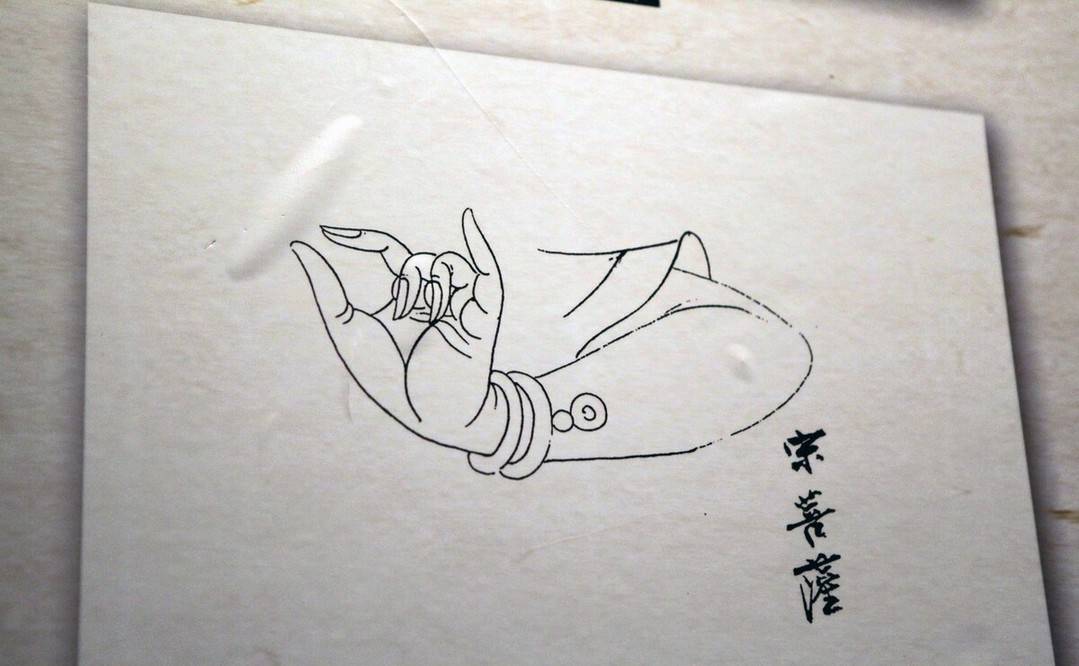 宋菩薩